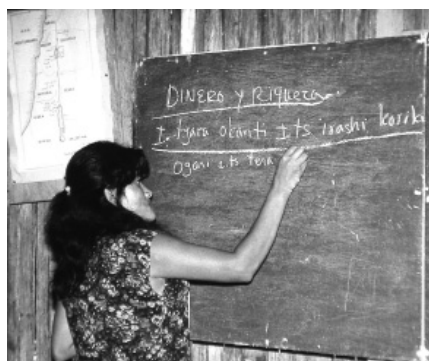 DINERO Y RIQUEZA
I. tjara okanti I ts irashi koriki
Ogari i ts tera